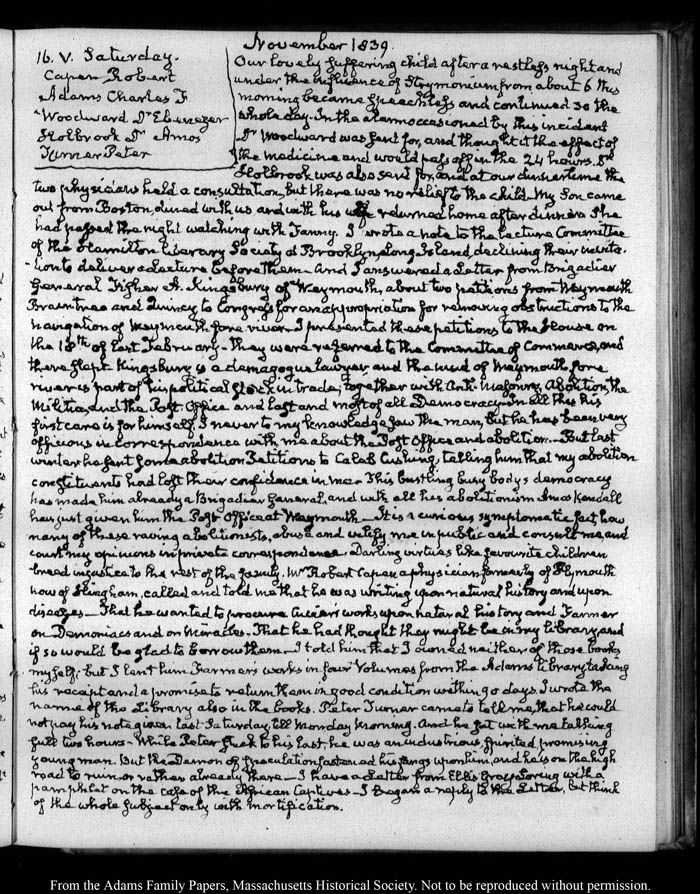 November 1839.
16. V. Saturday.
Capen Robert
Adams Charles F
Woodward Dr Ebenezer
Holbrook Dr Amos
Turner Peter
Our lovely suffering child after a restless night and
under the influence of Strymonium from about 6 this
morning became speechless and continued so the
whole day. In the alarm occasioned by this incident
Dr Woodward was sent for, and thought it the effect of
the medicine and would pass off in the 24 hours. Dr
Holbrook was also sent for, and at our dinner time the
two physicians held a consultation, but there was no relief to the child. My Son came
out from Boston, dined with us and with his wife returned home after dinner. She
had passed the night watching with Fanny. I wrote a note to the Lecture Committee
of the Hamilton Literary Society of Brooklyn, Long Island, declining their invita-
tion to deliver a Lecture before them. And I answered a Letter from Brigadier
General Fisher A. Kingsbury of Weymouth, about two petitions from Weymouth
Braintree and Quincy to Congress for an appropriation for removing obstructions to the
navigation of Weymouth fore river. I presented these petitions to the House on
the 18th of last February. They were referred to the Committee of Commerce, and
there slept. Kingsbury is a demagogue lawyer, and the mud of Weymouth fore
river is part of his political stock in trade, together with Anti-Masonry, Abolition, the
Militia, and the Post Office and last and most of all Democracy. In all this his
first care is for himself. I never to my knowledge saw the man, but he has been very
officious in correspondence with me about the Post Office and abolition. But last
winter he sent some abolition Petitions to Caleb Cushing, telling him that my abolition
constituents had lost their confidence in me. This bustling busy body's democracy
has made him already a Brigadier General, and with all his abolitionism Amos Kendall
has just given him the Post Office at Weymouth. It is a curious symptomatic fact, how
many of these raving abolitionists, abuse and vilify me in public and consult me, and
court my opinions in private correspondence. Darling virtues like favourite children
breed injustice to the rest of the family. Mr Robert Capen a physician formerly of Plymouth
now of Hingham, called and told me that he was writing upon natural history and upon
diseases. That he wanted to procure Cuvier's works upon natural history and Farmer
on Demoniacs and on Miracles. That he had thought they might be in my library and
if so would be glad to borrow them. I told him that I owned neither of those books
myself; but I lent him Farmer's works in four Volumes from the Adams library taking
his receipt and a promise to return them in good condition within 90 days. I wrote the
name of the Library also in the books. Peter Turner came to tell me, that he could
not pay his note given last Saturday, till Monday Morning. And he sat with me talking
full two hours. While Peter stuck to his last, he was an industrious, spirited promising
young man. But the Demon of Speculation fastened his fangs upon him, and he is on the high
road to ruin, or rather already there. I have a Letter from Ellis Gray Loring with a
pamphlet on the case of the African Captives. I began a reply to the Letter, but think
of the whole subject only with mortification.
From the Adams Family Papers, Massachusetts Historical Society. Not to be reproduced without permission.